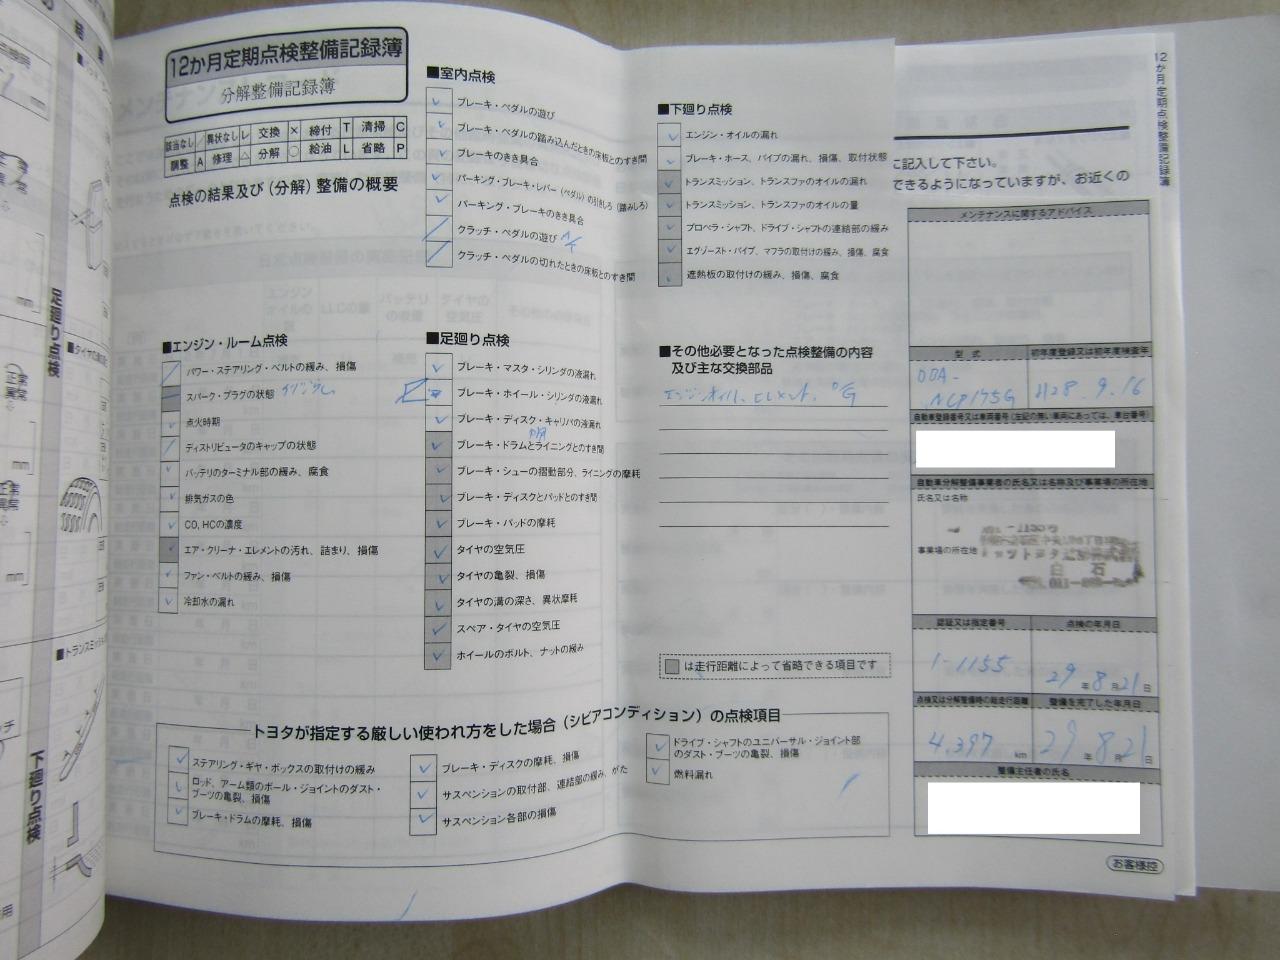 12か月定期点検整備記録簿
分解整備記録簿
該当なし ／ 異状なし レ 交換 × 締付 T 清掃 C
調整 A 修理 △ 分解 ○ 給油 L 省略 P
点検の結果及び(分解)整備の概要
■室内点検
ブレーキ・ペダルの遊び
ブレーキ・ペダルの踏み込んだときの床板とのすき間
ブレーキのきき具合
パーキング・ブレーキ・レバー(ペダル)の引きしろ(踏みしろ)
パーキング・ブレーキのきき具合
クラッチ・ペダルの遊び
クラッチ・ペダルの切れたときの床板とのすき間
■エンジン・ルーム点検
パワー・ステアリング・ベルトの緩み、損傷
スパーク・プラグの状態
点火時期
ディストリビュータのキャップの状態
バッテリのターミナル部の緩み、腐食
排気ガスの色
CO, HCの濃度
エア・クリーナ・エレメントの汚れ、詰まり、損傷
ファン・ベルトの緩み、損傷
冷却水の漏れ
■足廻り点検
ブレーキ・マスタ・シリンダの液漏れ
ブレーキ・ホイール・シリンダの液漏れ
ブレーキ・ディスク・キャリパの液漏れ
ブレーキ・ドラムとライニングとのすき間
ブレーキ・シューの摺動部分、ライニングの摩耗
ブレーキ・ディスクとパッドとのすき間
ブレーキ・パッドの摩耗
タイヤの空気圧
タイヤの亀裂、損傷
タイヤの溝の深さ、異状摩耗
スペア・タイヤの空気圧
ホイールのボルト、ナットの緩み
■下廻り点検
エンジン・オイルの漏れ
ブレーキ・ホース、パイプの漏れ、損傷、取付状態
トランスミッション、トランスファのオイルの漏れ
トランスミッション、トランスファのオイルの量
プロペラ・シャフト、ドライブ・シャフトの連結部の緩み
エグゾースト・パイプ、マフラの取付けの緩み、損傷、腐食
遮熱板の取付けの緩み、損傷、腐食
■その他必要となった点検整備の内容
及び主な交換部品
エンジンオイル、エレメント、
は走行距離によって省略できる項目です
トヨタが指定する厳しい使われ方をした場合(シビアコンディション)の点検項目
ステアリング・ギヤ・ボックスの取付けの緩み
ロッド、アーム類のボール・ジョイントのダスト・
ブーツの亀裂、損傷
ブレーキ・ドラムの摩耗、損傷
ブレーキ・ディスクの摩耗、損傷
サスペンションの取付部、連結部の緩み、がた
サスペンション各部の損傷
ドライブ・シャフトのユニバーサル・ジョイント部
のダスト・ブーツの亀裂、損傷
燃料漏れ
に記入して下さい。
できるようになっていますが、お近くの
メンテナンスに関するアドバイス
型式 初年度登録又は初年度検査年
DDA-
NCP175G H28.9.16
自動車登録番号又は車両番号(左記の無い車両にあっては、車台番号)
自動車分解整備事業者の氏名又は名称及び事業場の所在地
氏名又は名称
事業場の所在地
白石
認証又は指定番号 点検の年月日
1-1155 29年8月21日
点検又は分解整備時の総走行距離 整備を完了した年月日
4,397 km 29年8月21日
整備主任者の氏名
お客様控
12か月定期点検整備記録簿
足廻り点検
下廻り点検
■タイヤの
■トランスミッ
正常
異常
mm